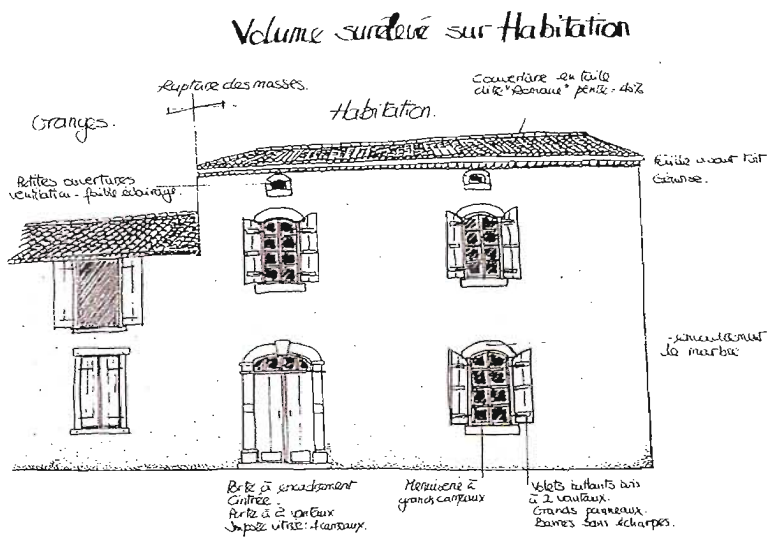 Volume surélevé sur Habitation
Rupture des masses.
Couverture en tuile
dite "Romane" pente = 40%
Granges.
Habitation.
Petites ouvertures
ventilation - faible éclairage.
Faible avant toit
Génoise.
encadrement
de marbre
Porte à encadrement
Cintrée.
Porte à 2 vantaux
Imposte vitrée: 4 carreaux.
Menuiserie à
grands carreaux
Volets battants bois
à 2 vantaux.
Grands panneaux.
Barres sans écharpes.